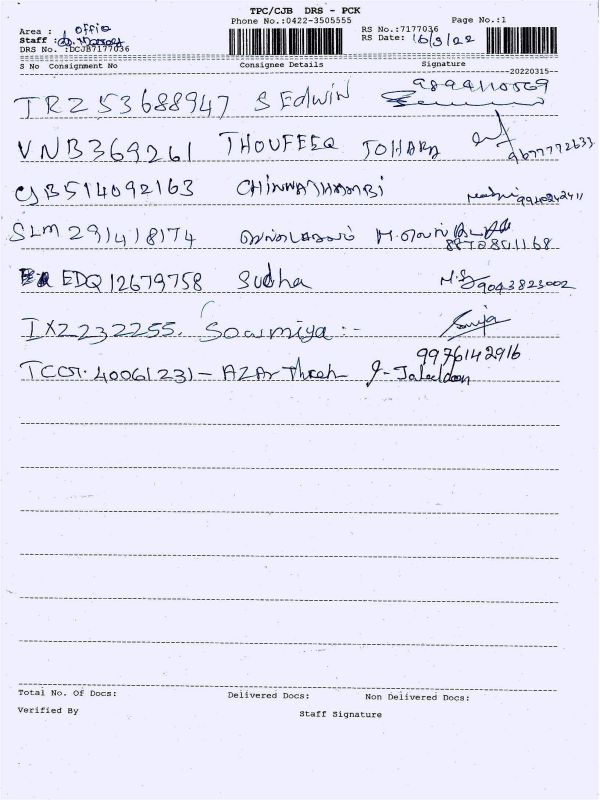 TPC/CJB DRS - PCK
Phone No.:0422-3505555
Page No.:1
RS No.:7177036
Area : Office
Staff :
RS Date: 16/3/22
DRS No. :DCJB7177036
S No Consignment No Consignee Details Signature
--20220315--
TRZ 53688947 S EDWIN 9894110569
VNB369261 THOUFEEQ JOHARA 9677772633
CJB514092163 CHINNATHAMBI 9940242411
SLM 291418174 8870801168
EDQ 12679758 Sudha M.S 9043823002
IXZ232255. Sowmiya :-
9976142916
TCCG. 40061231 - AZAr J-
Total No. Of Docs: Delivered Docs: Non Delivered Docs:
Verified By Staff Signature